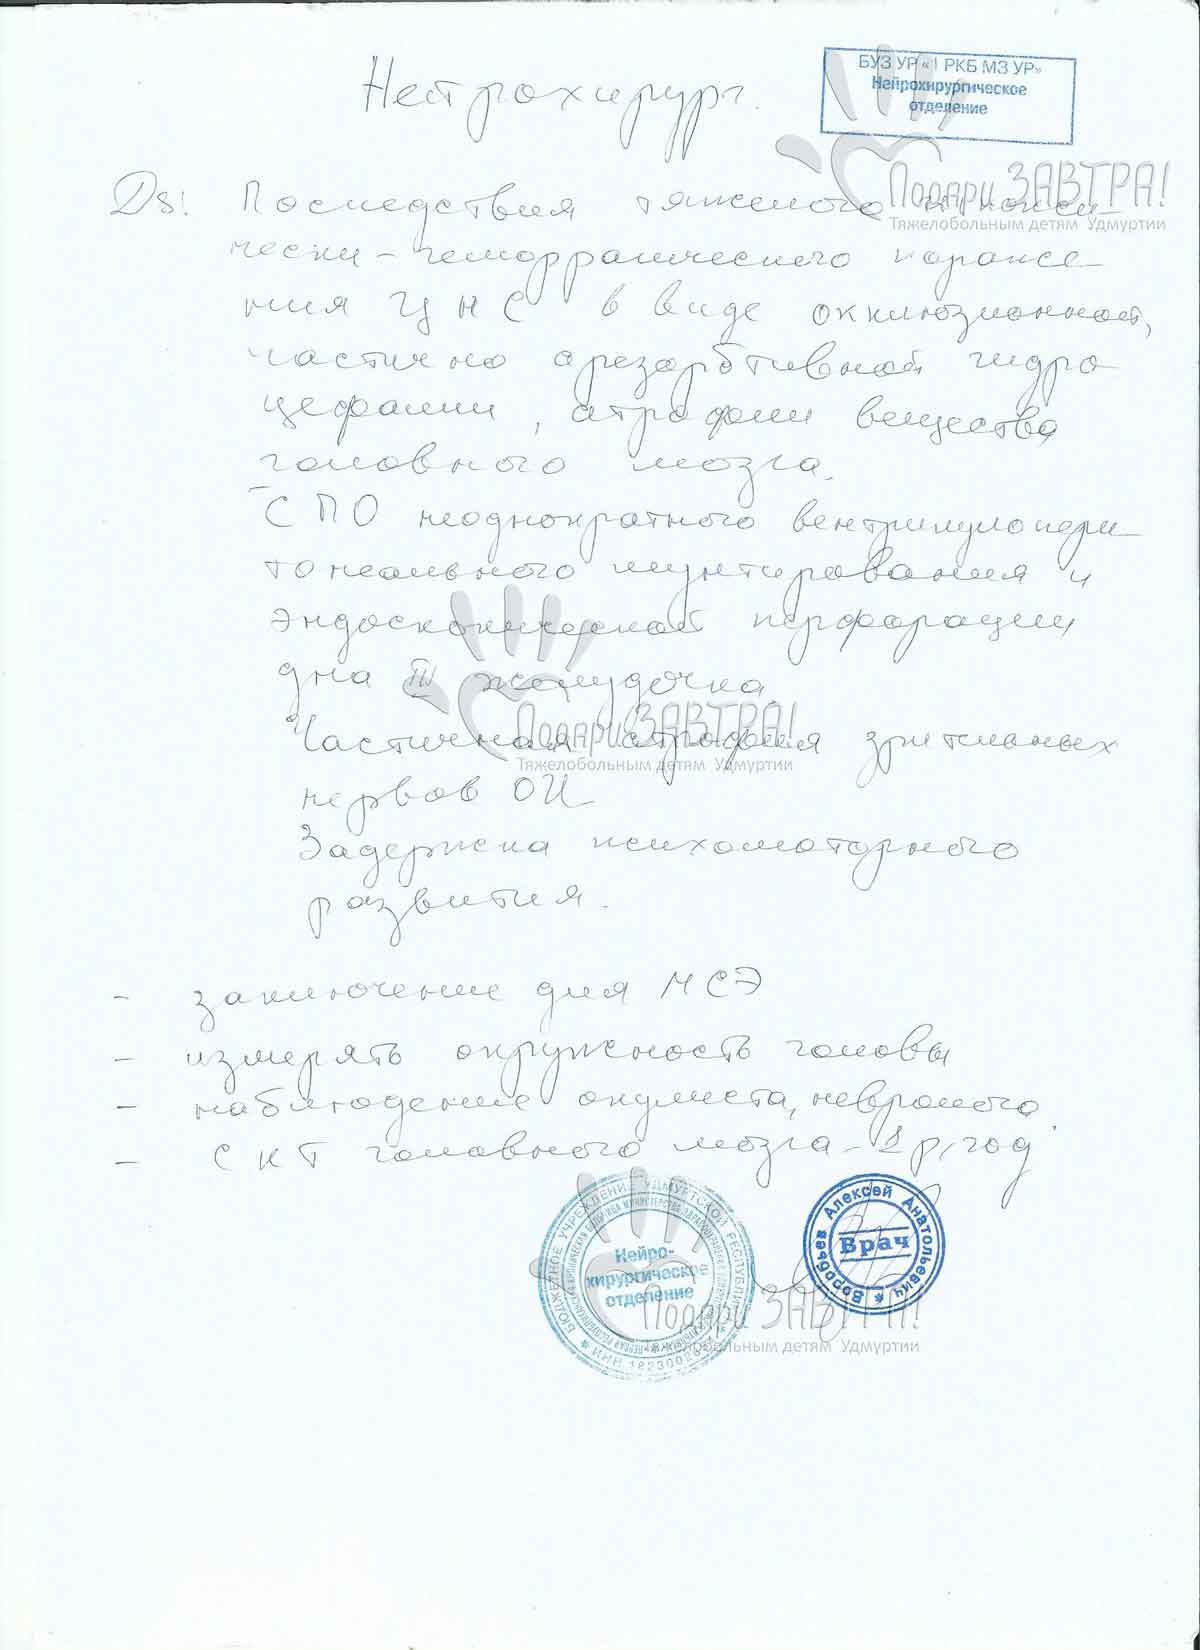 БУЗ УР «1 РКБ МЗ УР»
Нейрохирургическое
отделение
Нейрохирург.
Ds: Последствия тяжелого гипокси
чески-геморрагического пораже-
ния ЦНС в виде окклюзионной,
частично арезорбтивной гидро
цефалии, атрофии вещества
головного мозга.
СПО неоднократного вентрикулопери
тонеального шунтирования и
эндоскопической перфорации
дна III желудочка.
Частичная атрофия зрительных
нервов ОИ
Задержка психомоторного
развития.
- заключение для МСЭ
- измерять окружность головы
- наблюдение окулиста, невролога
- СКТ головного мозга - 1 р/год
Подари ЗАВТРА!
Тяжелобольным детям Удмуртии
Подари ЗАВТРА!
Тяжелобольным детям Удмуртии
БЮДЖЕТНОЕ УЧРЕЖДЕНИЕ УДМУРТСКОЙ РЕСПУБЛИКИ
Нейро-
хирургическое
отделение
Воробьев Алексей Анатольевич
Врач
Подари ЗАВТРА!
Тяжелобольным детям Удмуртии